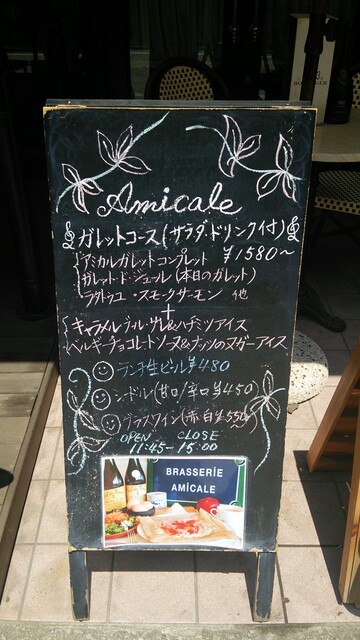 Amicale
ガレットコース(サラダ・ドリンク付)
アミカルガレットコンプレット ¥1580~
ガレット・ド・ジュール(本日のガレット)
ラタトゥユ・スモークサーモン 他
+
キャラメル・ブール・サレ&ハチミツアイス
ベルギーチョコレートソース&ナッツのヌガーアイス
ランチ生ビール ¥480
シードル(甘口/辛口 ¥450)
グラスワイン(赤 白 ¥550~
OPEN CLOSE
11:45-15:00
BRASSERIE
AMICALE